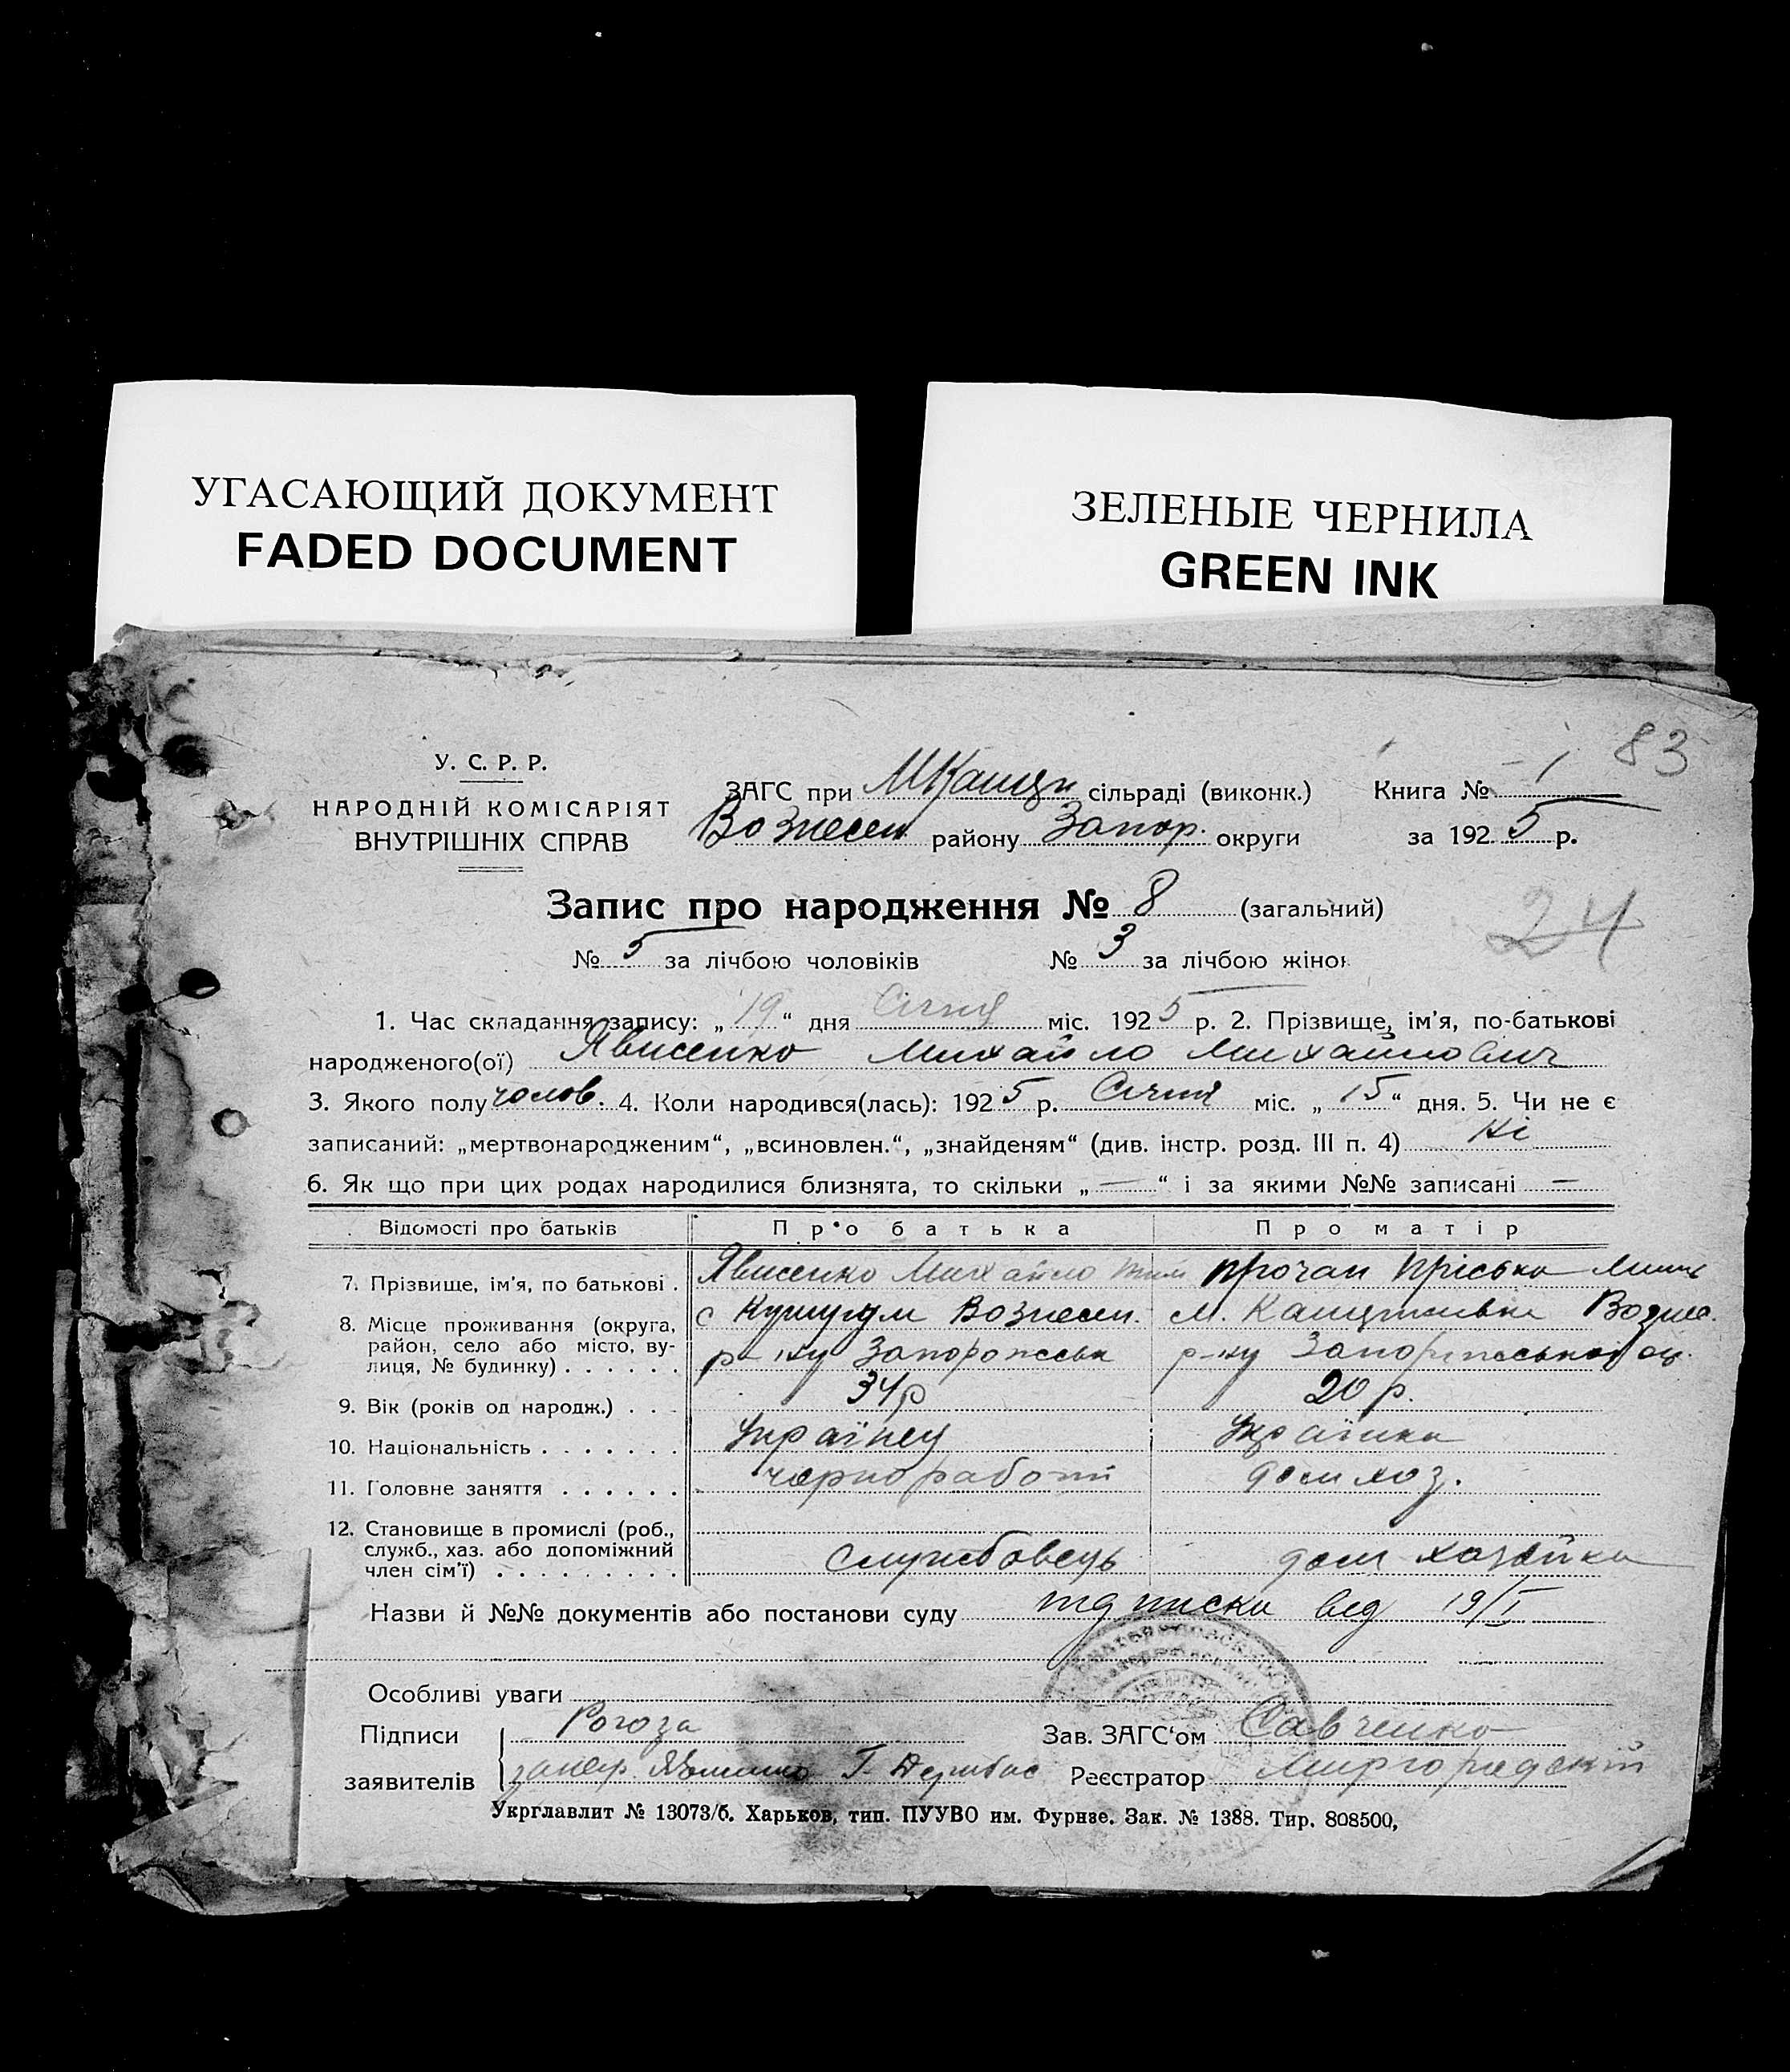 УГАСАЮЩИЙ ДОКУМЕНТ
FADED DOCUMENT
ЗЕЛЕНЫЕ ЧЕРНИЛА
GREEN INK
83
У. С. Р. Р.
НАРОДНІЙ КОМІСАРІЯТ
ВНУТРІШНІХ СПРАВ
ЗАГС при сільраді (виконк.) Книга № 1
Вознесен району Запор. округи за 1925 р.
Запис про народження № 8 (загальний)
24
№ 5 за лічбою чоловіків № 3 за лічбою жінок
1. Час складання запису: „19“ дня Січня міс. 1925 р. 2. Прізвище, ім’я, по-батькові
народженого(ої) Явисенко Михайло Михайлович
3. Якого полу чолов. 4. Коли народився(лась): 1925 р. Січня міс. „15“ дня. 5. Чи не є
записаний: „мертвонародженим“, „всиновлен.“, „знайденям“ (див. інстр. розд. III п. 4) Ні
6. Як що при цих родах народилися близнята, то скільки „—“ і за якими №№ записані —
Відомості про батьків Про батька Про матір
7. Прізвище, ім’я, по батькові . Явисенко Михайло Прочан Пріська
8. Місце проживання (округа, район, село або місто, вулиця, № будинку) . . . . . .
с Кушугум Вознесен. р-ну Запорожськ
м. р-ну Запоріжської ок.
9. Вік (років од народж.) . . . 34 р 20 р.
10. Національність . . . . . . . Українец Українка
11. Головне заняття . . . . . . чорноработ дом хоз.
12. Становище в промислі (роб., служб., хаз. або допоміжний член сім’ї) . . . . . . . . .
службовець дом хазяйка
Назви й №№ документів або постанови суду підписка від 19/I
Особливі уваги
Підписи заявителів
Рогоза
Г. Дерибас
Зав. ЗАГС‘ом Савченко
Реєстратор Миргородский
Укрглавлит № 13073/б. Харьков, тип. ПУУВО им. Фурнзе. Зак. № 1388. Тир. 808500,